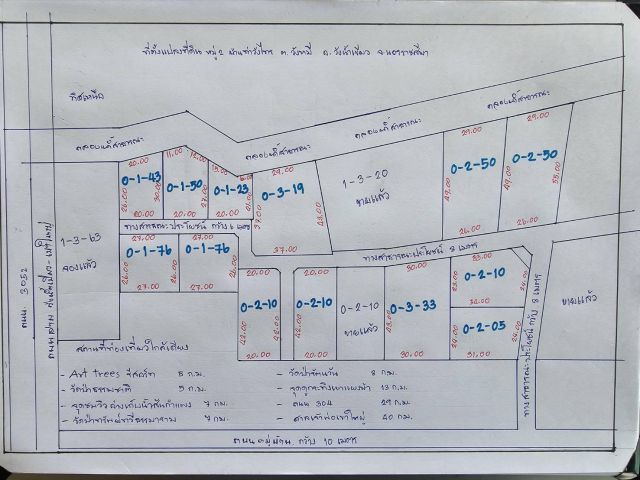 ที่ตั้งแปลงที่ดิน หมู่ 2 ต.วังหมี อ.วังน้ำเขียว จ.นครราชสีมา
ทิศเหนือ
คลองน้ำสาธารณะ
คลองน้ำสาธารณะ
คลองน้ำสาธารณะ
คลองน้ำสาธารณะ
20.00
11.00
29.00
29.00
29.00
0-1-43
0-1-50
0-1-23
0-3-19
1-3-20
ขายแล้ว
0-2-50
0-2-50
26.00
30.00
27.00
20.00
20.00
37.00
26.00
26.00
ทางสาธารณะประโยชน์ กว้าง 6 เมตร
ทางสาธารณะประโยชน์ 8 เมตร
1-3-63
จองแล้ว
27.00
27.00
0-1-76
0-1-76
26.00
26.00
27.00
27.00
20.00
20.00
30.00
0-2-10
0-2-10
0-2-10
ขายแล้ว
0-3-33
0-2-10
0-2-05
42.00
20.00
20.00
30.00
31.00
ขายแล้ว
ทางสาธารณะประโยชน์ กว้าง 8 เมตร
ถนน 3052
สถานที่ท่องเที่ยวใกล้เคียง
- Art trees รีสอร์ท 5 ก.ม.
- วัดป่าธรรมชาติ 5 ก.ม.
- จุดชมวิว อ่างเก็บน้ำลำกำแพง 7 กม.
7 กม.
8 ก.ม.
- จุดดูกระทิงเขาแผงม้า 13 ก.ม.
- ถนน 304 29 ก.ม.
- ศาลเจ้าพ่อเขาใหญ่ 40 กม.
ถนนหมู่บ้าน กว้าง 10 เมตร